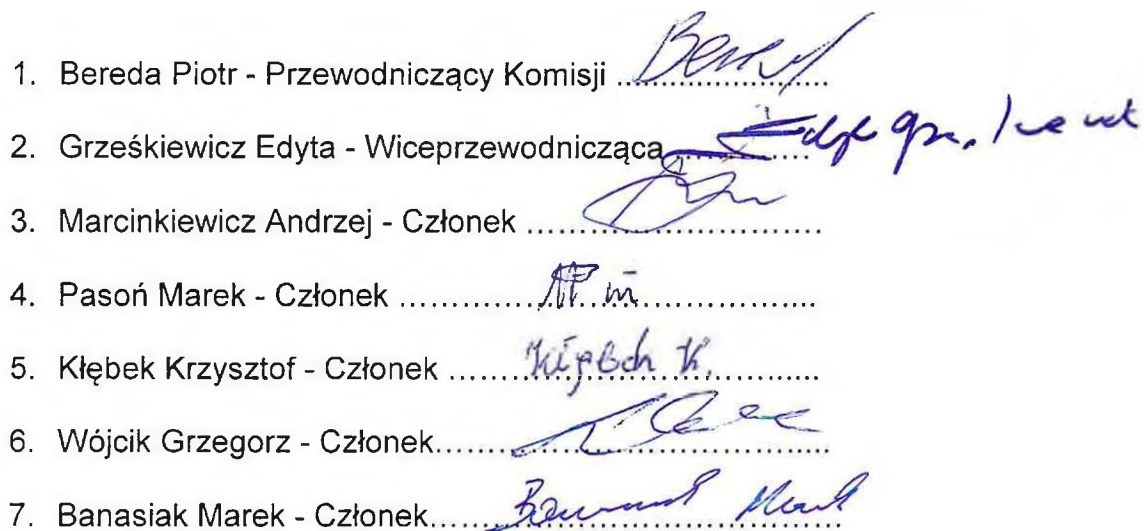 1. Bereda Piotr - Przewodniczący Komisji ......................
2. Grześkiewicz Edyta - Wiceprzewodnicząca ..............
3. Marcinkiewicz Andrzej - Członek ................................
4. Pasoń Marek - Członek .............................................
5. Kłębek Krzysztof - Członek ....... Kłębek K. ............
6. Wójcik Grzegorz - Członek...........................................
7. Banasiak Marek - Członek..... Banasiak Marek